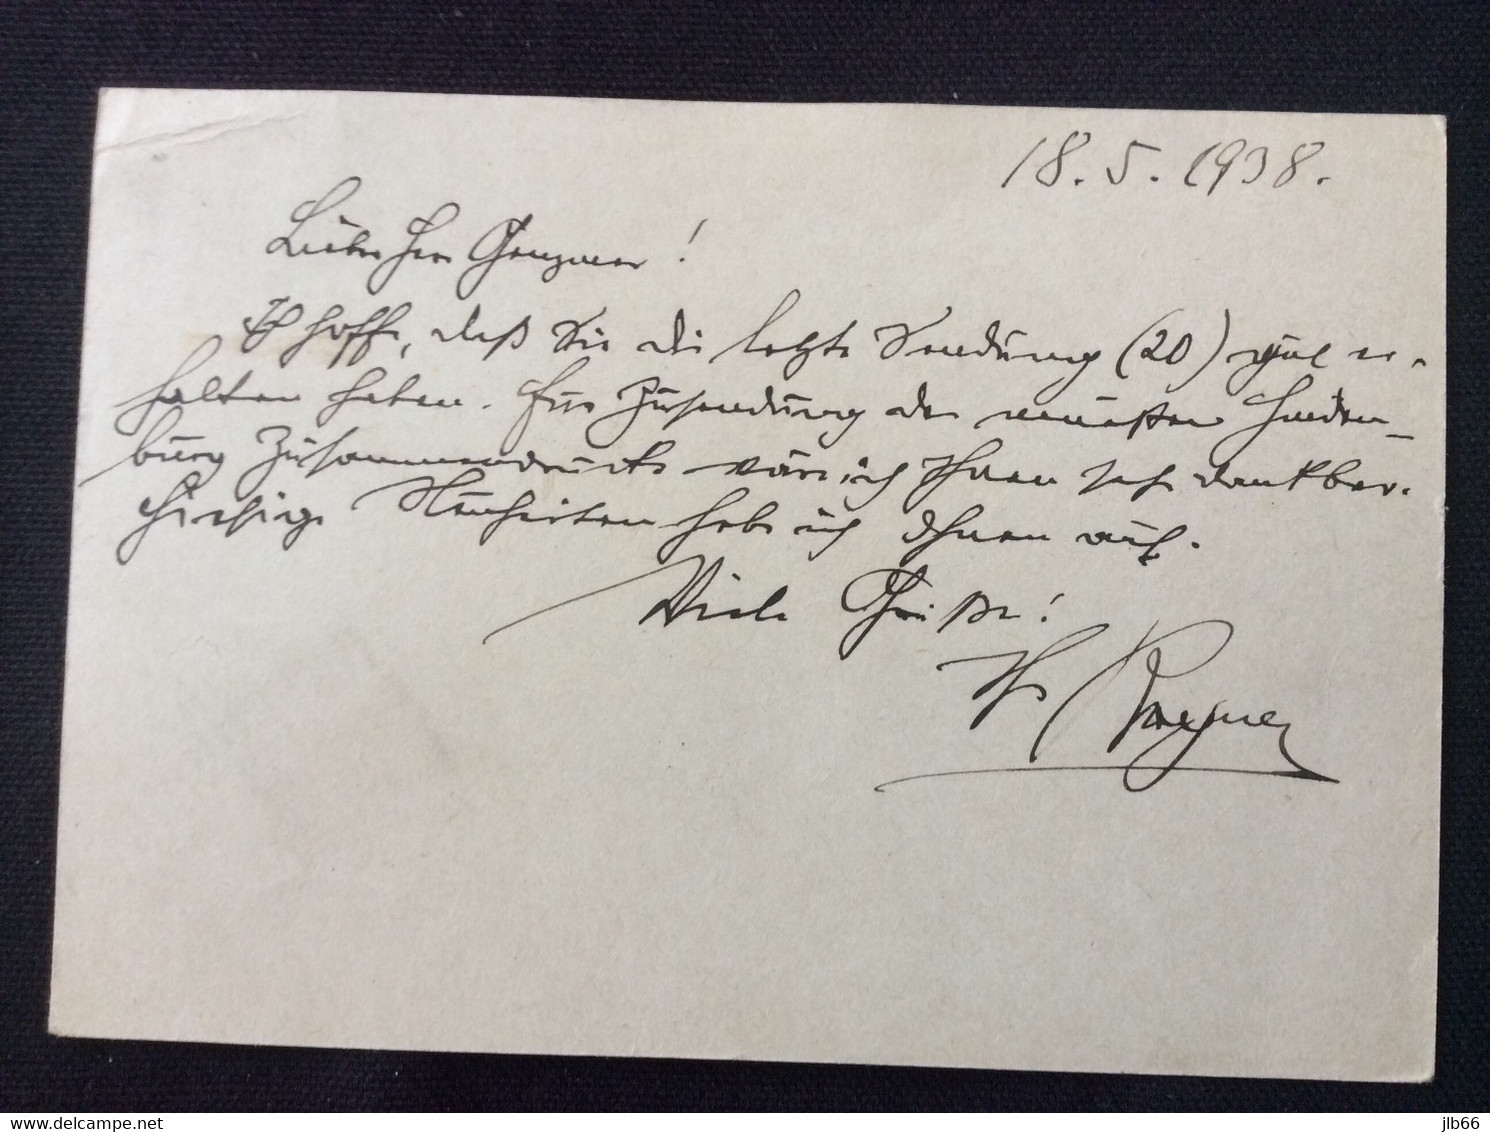 18.5.1938.
Lieber Herr Genzmer!
Ich hoffe, daß Sie die letzte Sendung (20) gut er-
halten haben. Für Zusendung der neuesten Hinden-
burg Zusammendrucke wäre ich Ihnen sehr dankbar.
Hiesige Neuheiten hebe ich Ihnen auf.
Viele Grüße!
Ihr
www.delcampe.net
jlb66